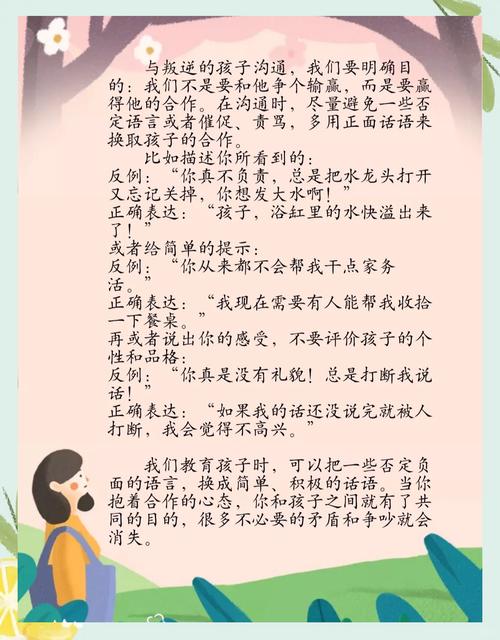 与叛逆的孩子沟通，我们要明确目
的：我们不是要和他争个输赢，而是要赢
得他的合作。在沟通时，尽量避免一些否
定语言或者催促、责骂，多用正面话语来
换取孩子的合作。
比如描述你所看到的：
反例：“你真不负责，总是把水龙头打开
又忘记关掉，你想发大水啊！”
正确表达：“孩子，浴缸里的水快溢出来
了！”
或者给简单的提示：
反例：“你从来都不会帮我干点家务
活。”
正确表达：“我现在需要有人能帮我收拾
一下餐桌。”
再或者说出你的感受，不要评价孩子的个
性和品格：
反例：“你真是没有礼貌！总是打断我说
话！”
正确表达：“如果我的话还没说完就被人
打断，我会觉得不高兴。”
我们教育孩子时，可以把一些否定负
面的语言，换成简单、积极的话语。当你
抱着合作的心态，你和孩子之间就有了共
同的目的，很多不必要的矛盾和争吵就会
消失。